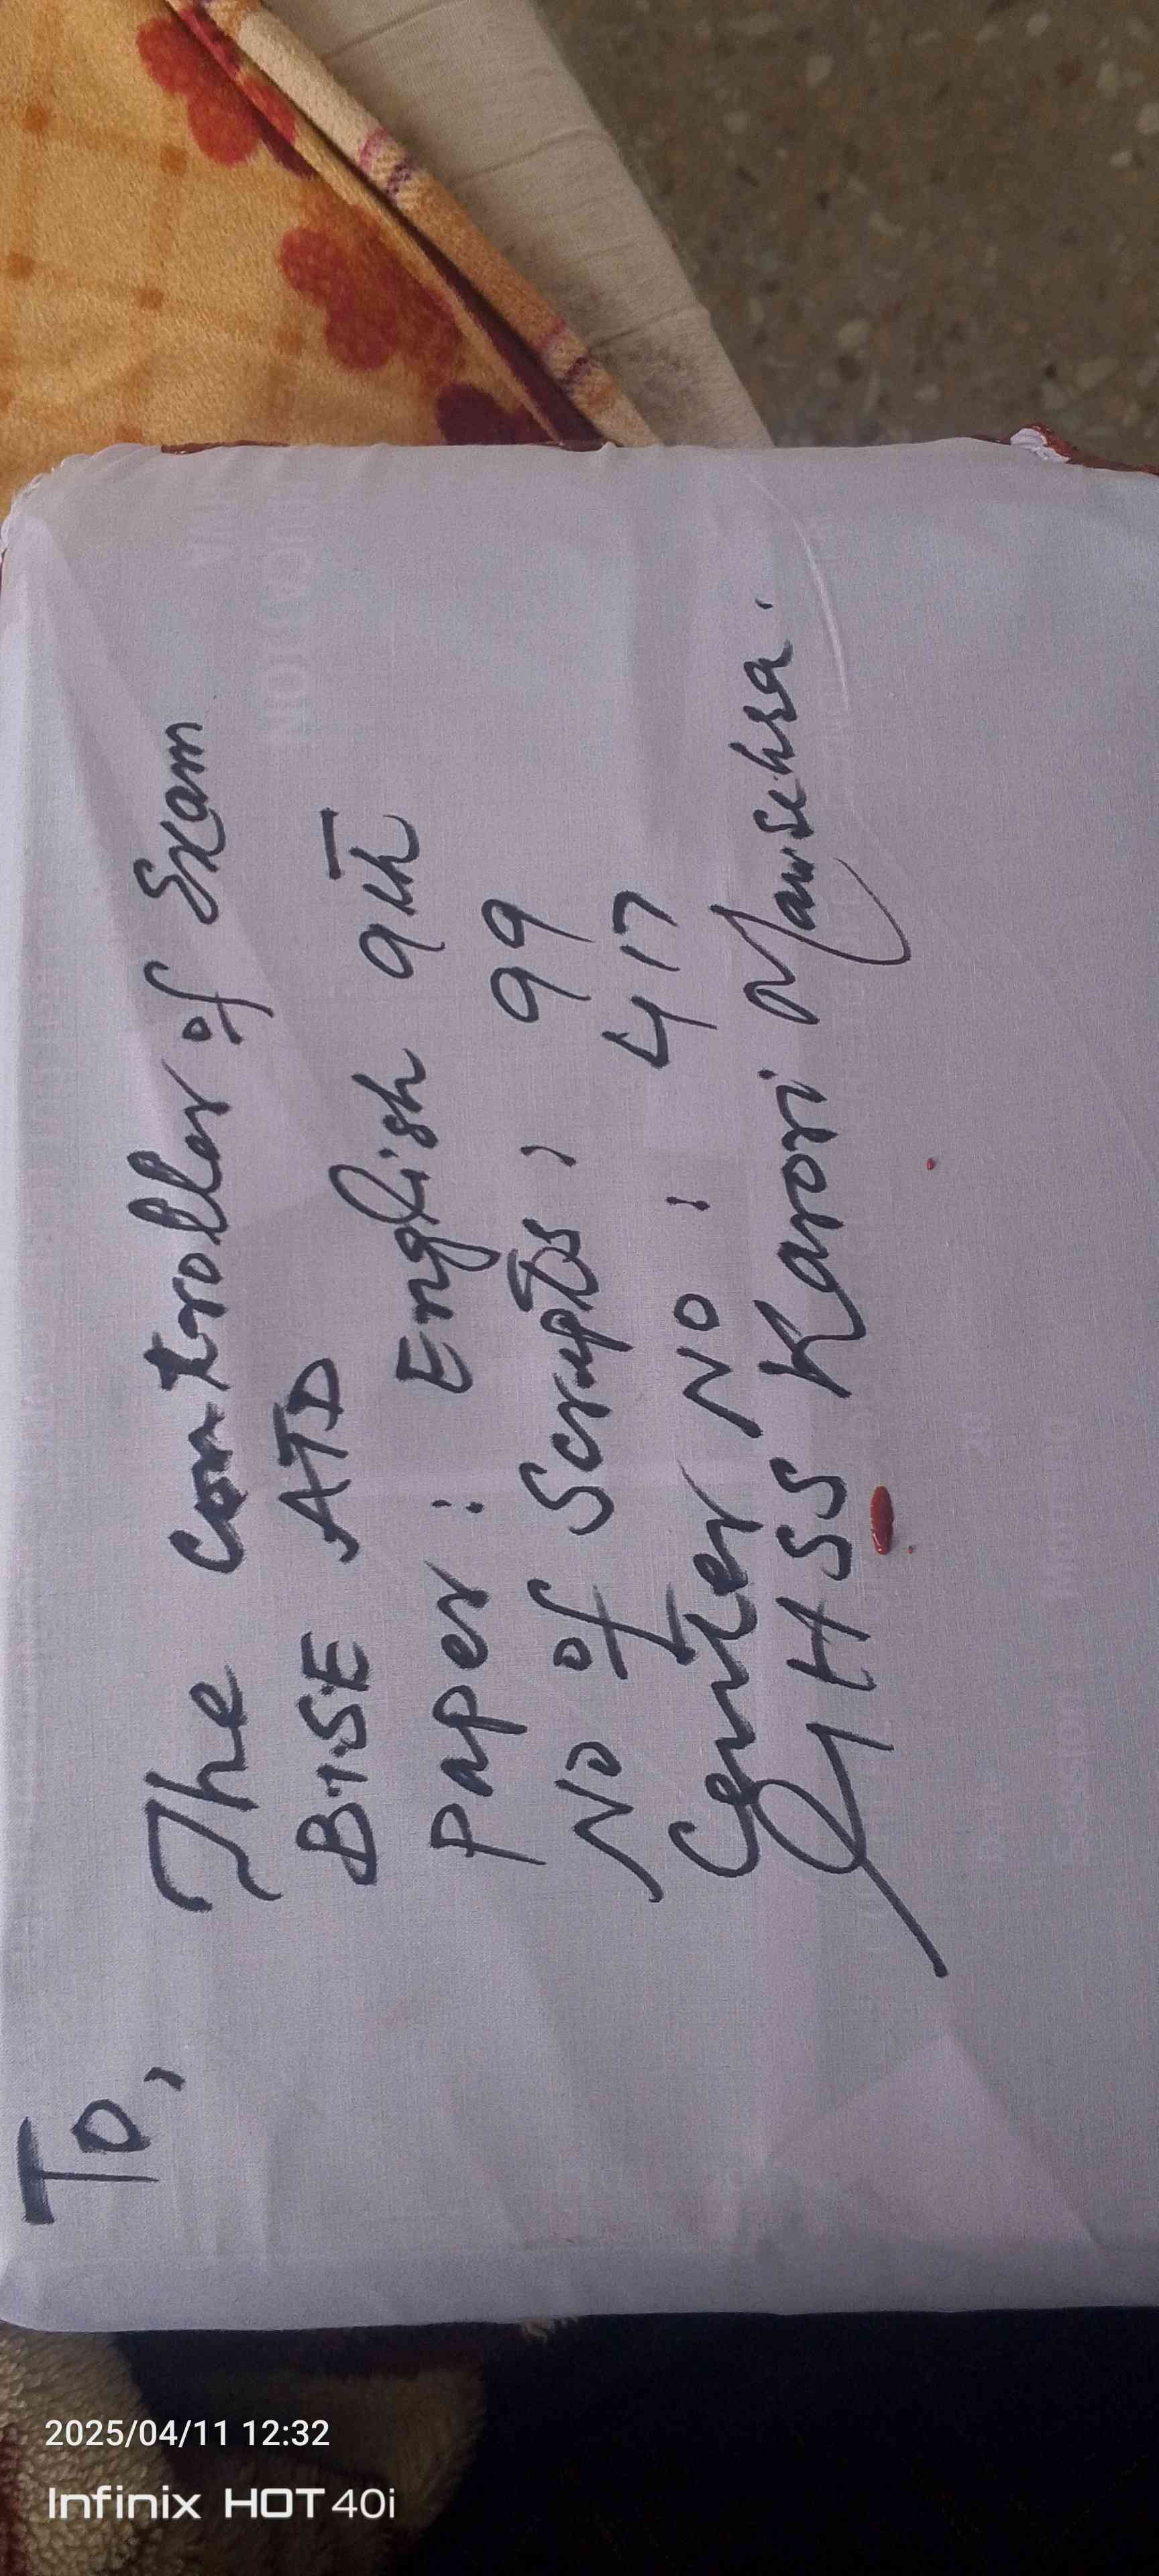 To,
The controller of Exam
BISE ATD
Paper: English 9th
No of Scripts: 99
Center No: 417
GHSS Karori Mansehra.
2025/04/11 12:32
Infinix HOT 40i